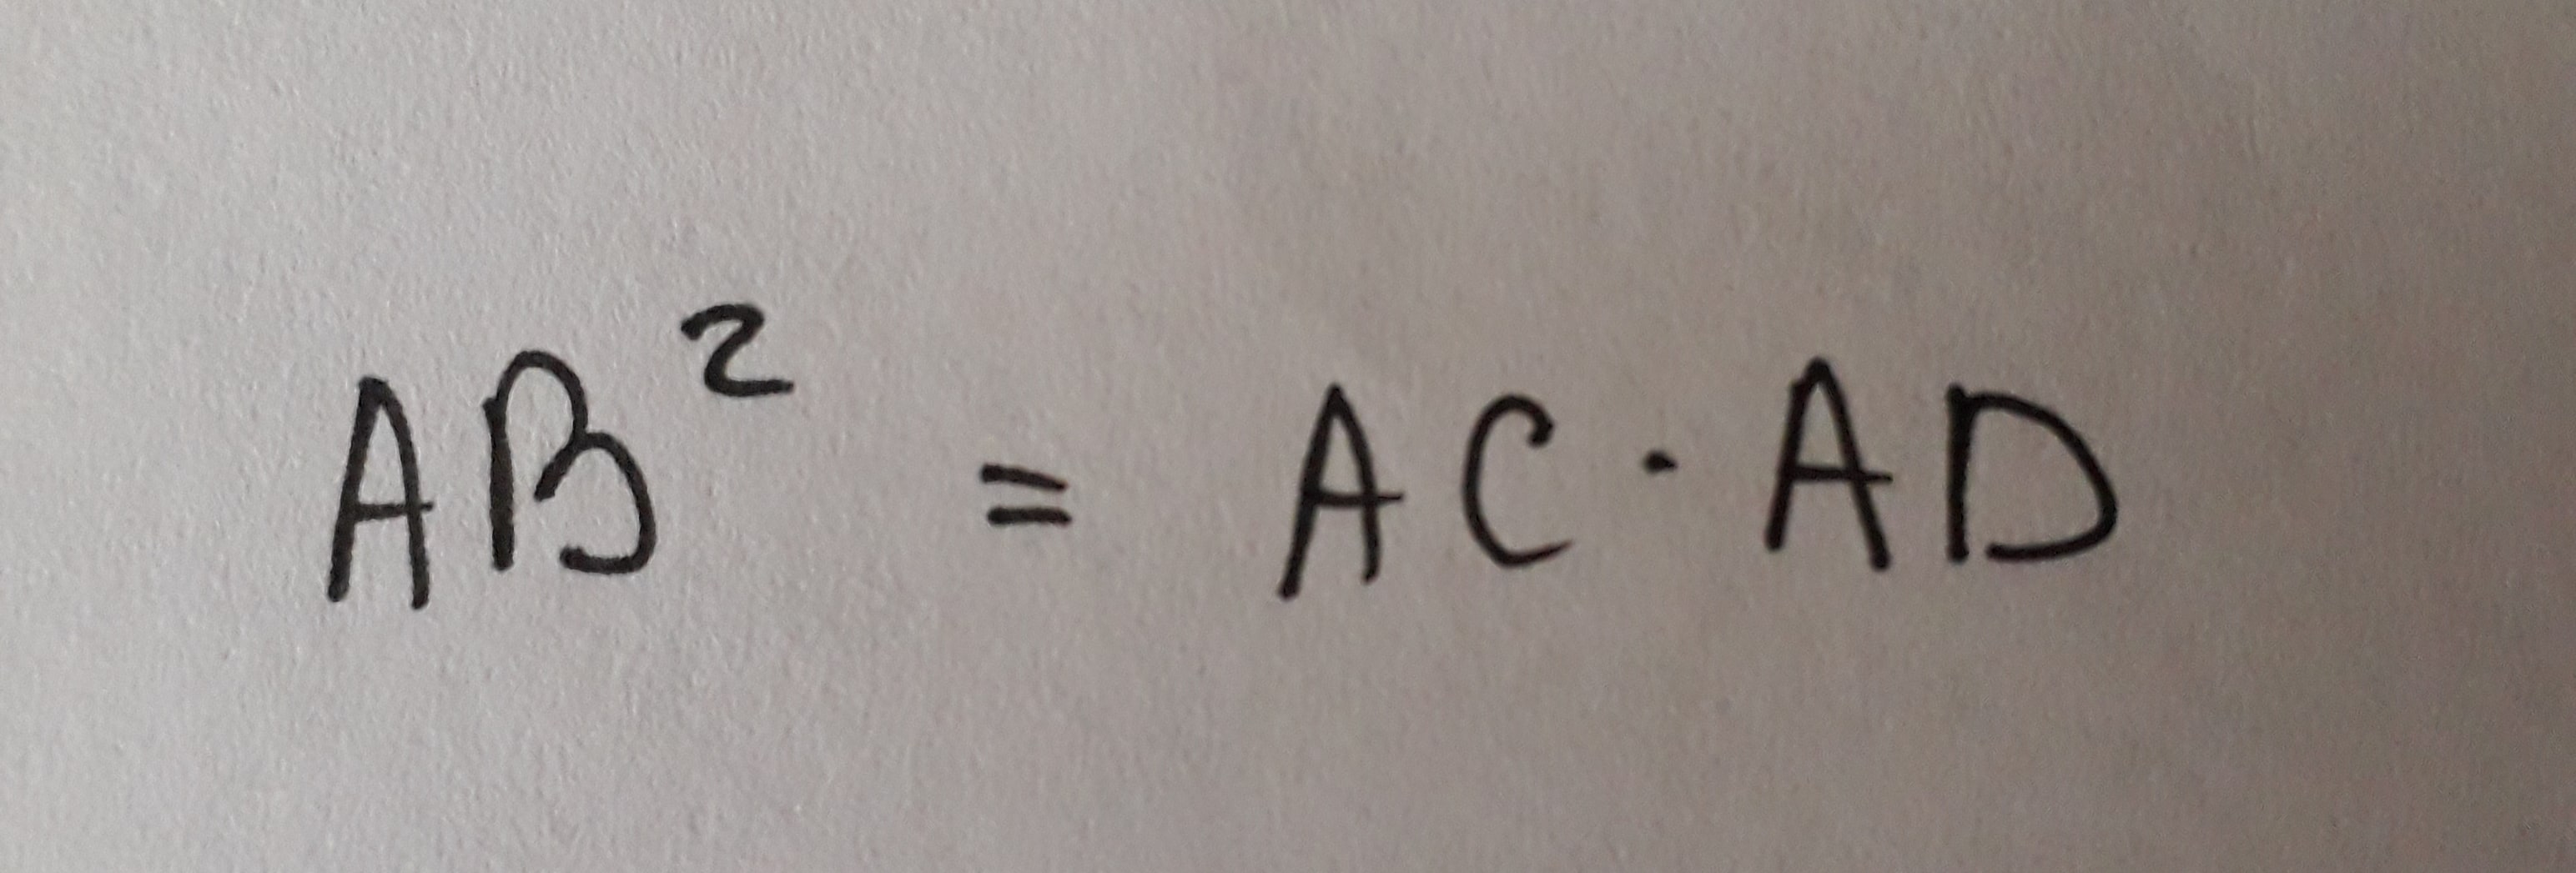 AB² = AC · AD